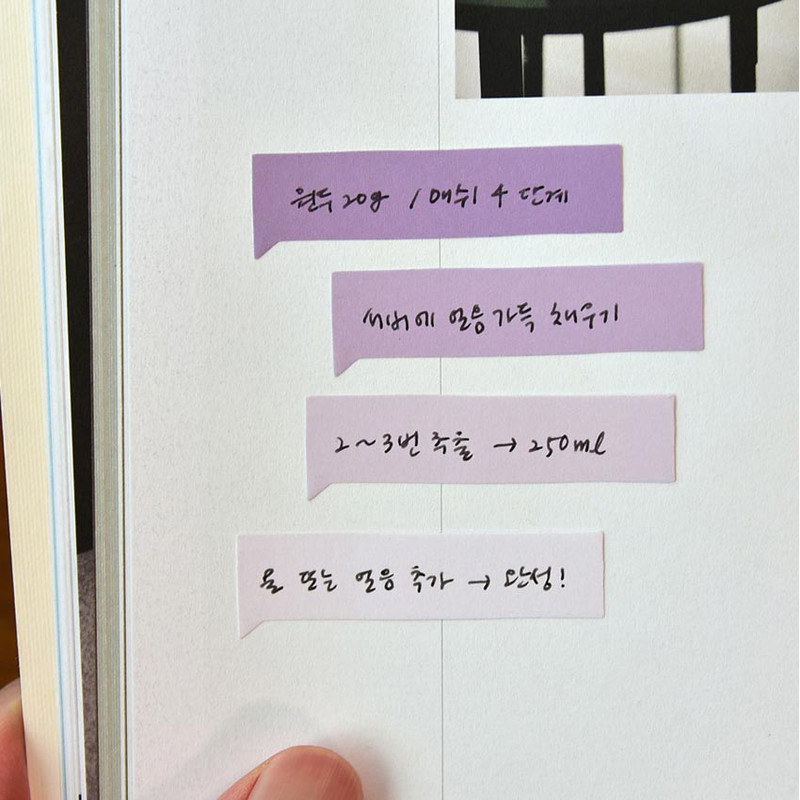 원두 20g / 매쉬 4 단계
써버에 얼음 가득 채우기
2~3번 추출 → 250ml
물 또는 얼음 추가 → 완성!